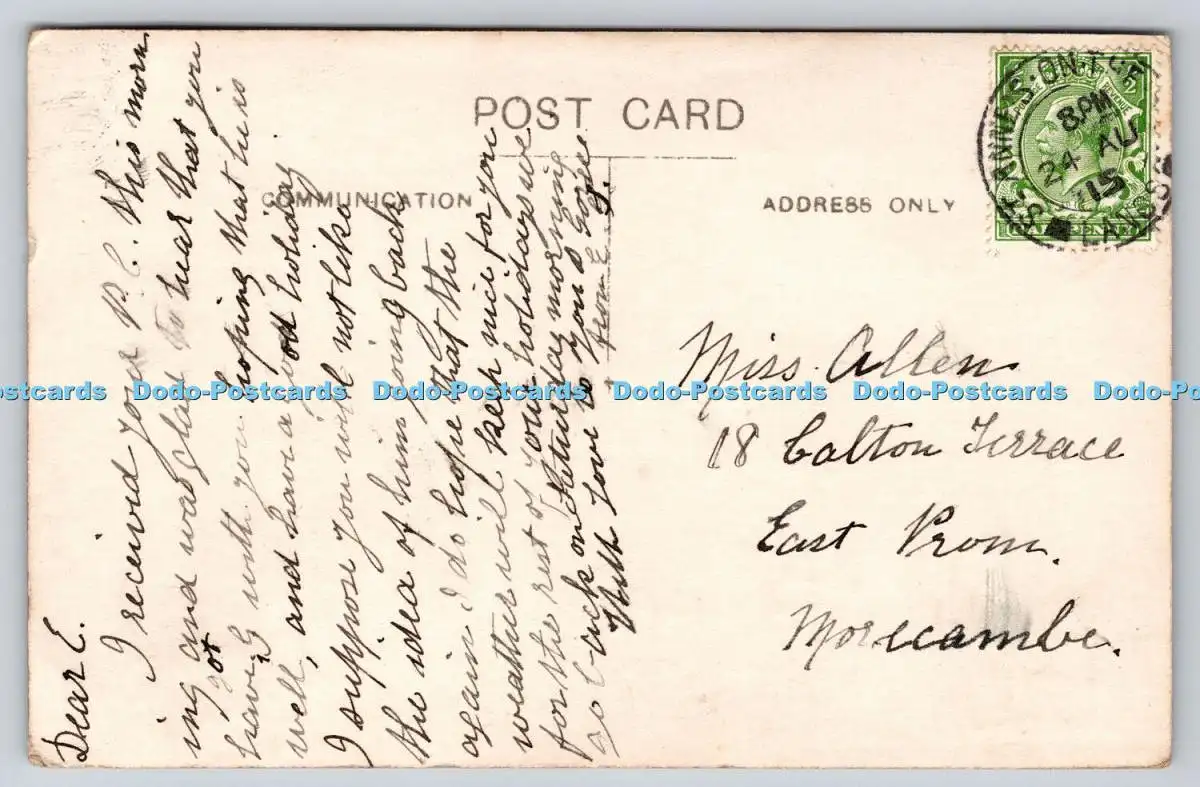 POST CARD
COMMUNICATION
ADDRESS ONLY
ST ANNE'S-ON-THE
8 PM
24 AU
15
LANCS
Dear E.
I received your P.C. this morn
ing and was glad to hear that you
have got G. with you hoping that he is
well, and having a good holiday
I suppose you will not like
the idea of him going back
again. I do hope that the
weather will keep nice for you
for the rest of your holidays we
go back on Saturday morning
With love to you & George
from E. J.
Miss Allen
18 Calton Terrace
East Prom.
Morecambe.
Postcards Dodo-Postcards Dodo-Postcards Dodo-Postcards Dodo-Postcards Dodo-Pos